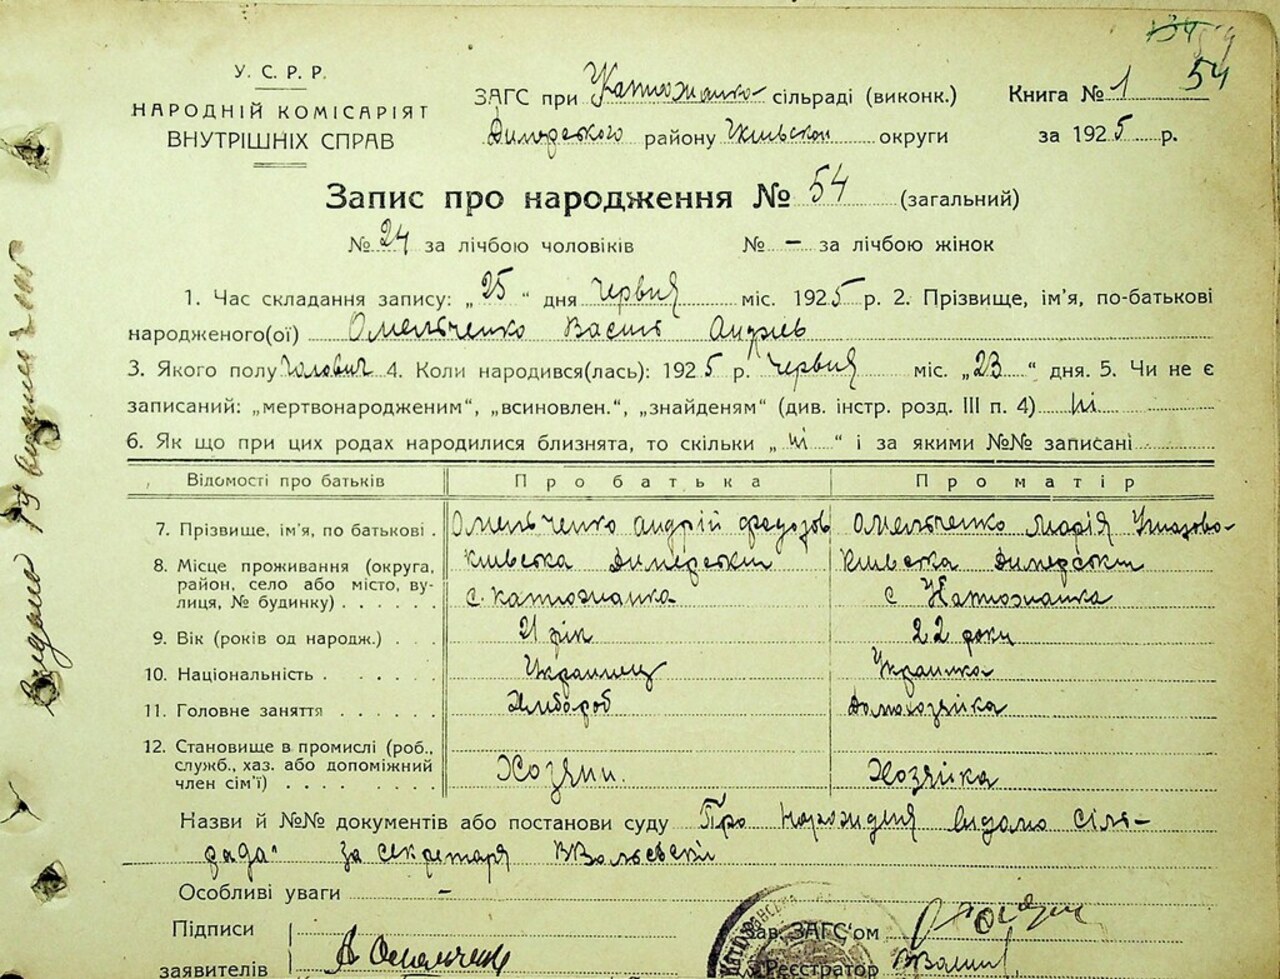 134 59
54
У. С. Р. Р.
НАРОДНІЙ КОМІСАРІЯТ
ВНУТРІШНІХ СПРАВ
ЗАГС при Катюжанко сільраді (виконк.)
Димерского району Київской округи
Книга № 1
за 1925 р.
Запис про народження № 54 (загальний)
№ 24 за лічбою чоловіків № – за лічбою жінок
1. Час складання запису: „25“ дня Червня міс. 1925 р. 2. Прізвище, ім'я, по-батькові
народженого(ої) Омельченко Василь Андріев
3. Якого полу Чоловіч 4. Коли народився(лась): 1925 р. червня міс. „23“ дня. 5. Чи не є
записаний: „мертвонародженим“, „всиновлен.“, „знайденям“ (див. інстр. розд. III п. 4) ні
6. Як що при цих родах народилися близнята, то скільки „ні“ і за якими №№ записані
Відомості про батьків Про батька Про матір
7. Прізвище, ім'я, по батькові . Омельченко Андрій Омельченко Марія
8. Місце проживання (округа, Київська Димерський Київська Димерський
район, село або місто, ву-
лиця, № будинку) . . . . . . с. Катюжанка с Катюжанка
9. Вік (років од народж.) . . . 21 рік 22 роки
10. Національність . . . . . . Украинец Украинка
11. Головне заняття . . . . . . Хлибороб Домохозяйка
12. Становище в промислі (роб.,
служб., хаз. або допоміжний
член сім'ї) . . . . . . . . Хозяин. Хозяйка
Назви й №№ документів або постанови суду Про народження видано сіль-
рада за секретаря
Особливі уваги –
Підписи
заявителів А Омельченко
Зав. ЗАГС'ом
Реєстратор
Видано